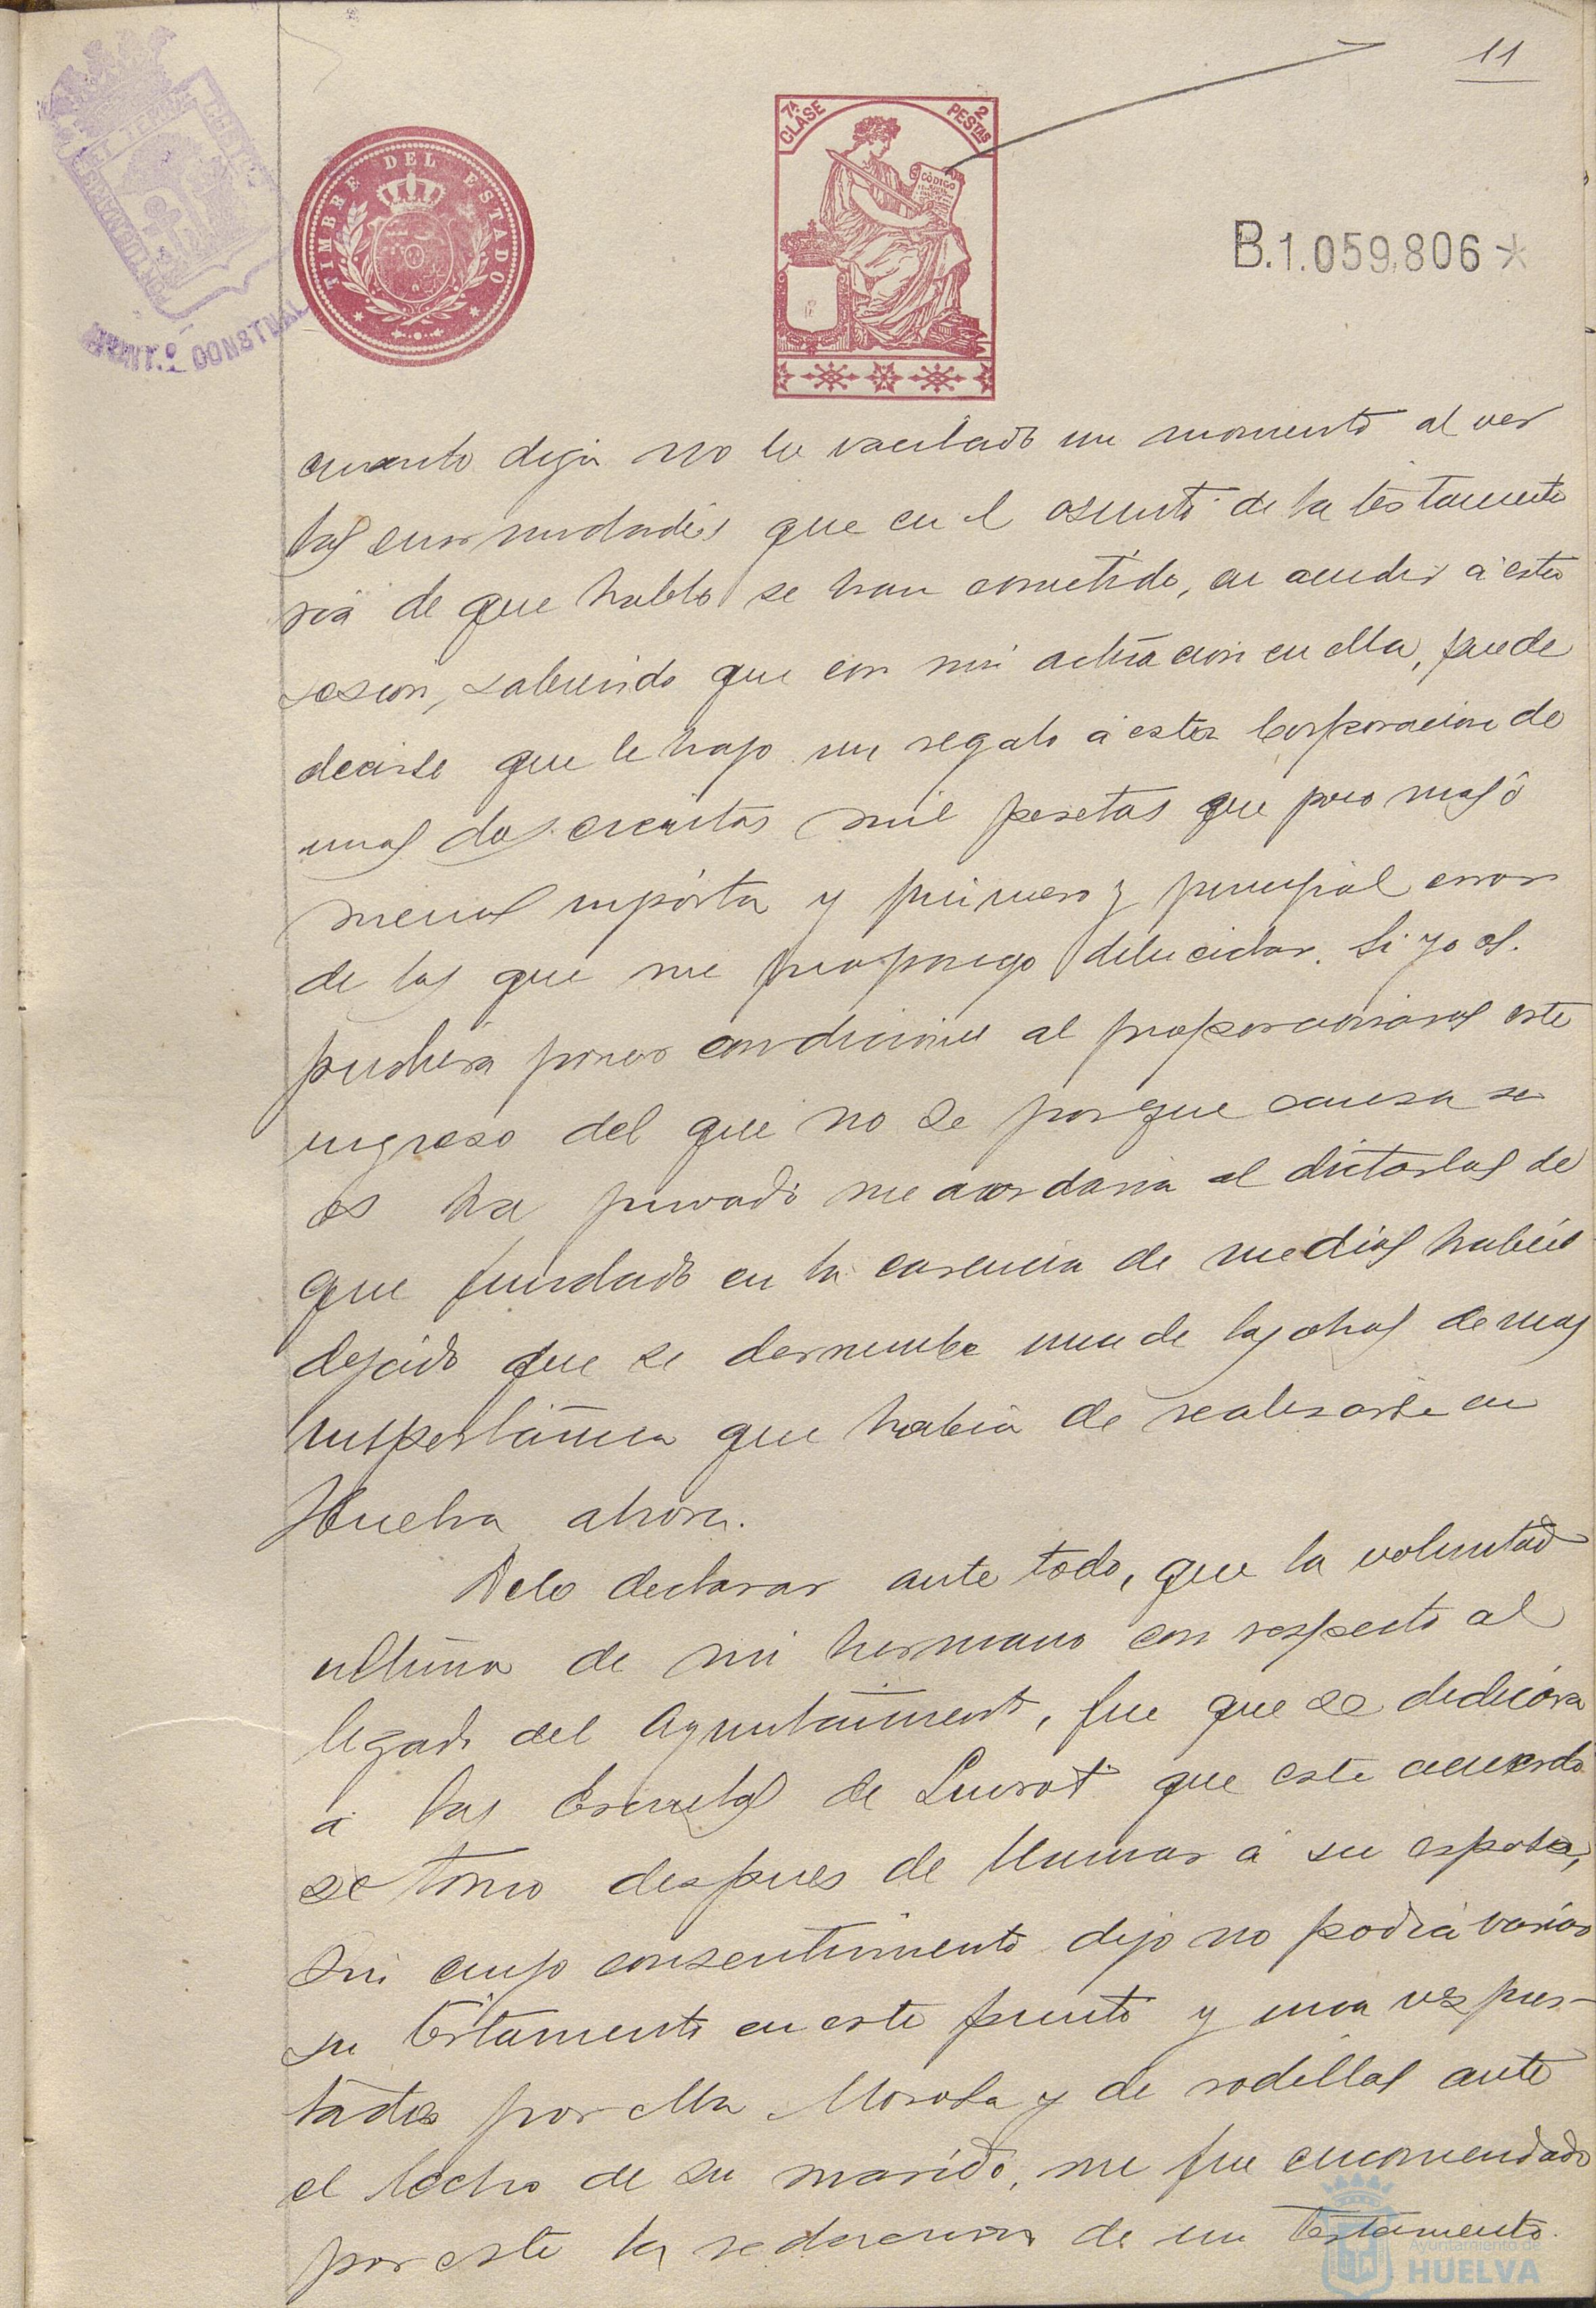 11
7ª CLASE
2 PESTAS
CÓDIGO
TIMBRE DEL ESTADO
B.1.059,806*
PORTUS MARIS ET TERRÆ CUSTODIA
AYUNT.º CONSTNAL
cuanto diga no he vacilado un momento al ver
las enormidades que en el asunto de la testamente
ria de que hablo se han cometido, en acudir á esta
sesion, sabiendo que con mi actuacion en ella, puede
decirse que le hago un regalo á esta Corporacion de
unas doscientas mil pesetas que poco mas ó
menos importa y primero y principal error
de los que me propongo dilucidar. Si yo os
pudiera poner condiciones al proporcionaros este
ingreso del que no se porque causa se
os ha privado me acordaria al dictarlas de
que fundado en la carencia de medios habéis
dejado que se derrumbe una de las obras de mas
importancia que habia de realizarse en
Huelva ahora.
Debo declarar ante todo, que la voluntad
ultima de mi hermano con respecto al
legado del Ayuntamiento, fue que se dedicara
á las Escuelas de Siurot que este acuerdo
se tomo despues de llamar á su esposa,
sin cuyo consentimiento dijo no podia variar
su testamento en este punto y una vez pres-
tado por ella llorosa y de rodillas ante
el lecho de su marido, me fue encomendado
por este la redaccion de un testamento.
Ayuntamiento de
HUELVA